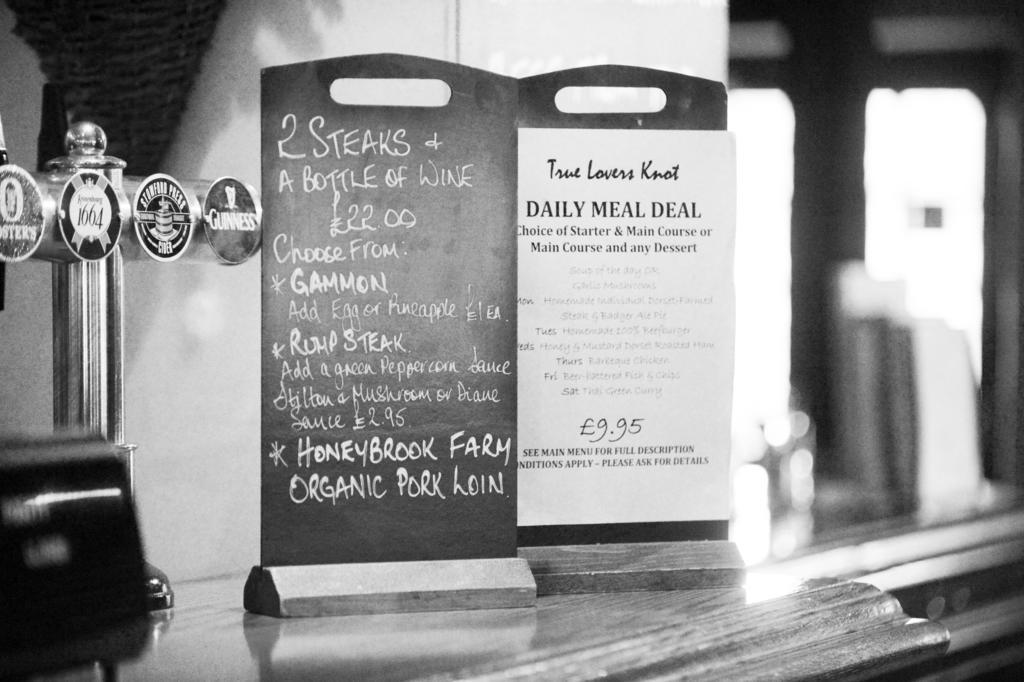 2 STEAKS &
A BOTTLE OF WINE
£22.00
CHOOSE FROM:
* GAMMON
Add Egg or Pineapple £1 EA.
* RUMP STEAK
Add a green Peppercorn Sauce
Stilton & Mushroom or Diane
Sauce £2.95
* HONEYBROOK FARM
ORGANIC PORK LOIN.
True Lovers Knot
DAILY MEAL DEAL
Choice of Starter & Main Course or
Main Course and any Dessert
Soup of the day OR
Garlic Mushrooms
Mon Homemade Individual Dorset-Farmed
Steak & Badger Ale Pie
Tues Homemade 100% Beefburger
Weds Honey & Mustard Dorset Roasted Ham
Thurs Barbeque Chicken
Fri Beer-battered Fish & Chips
Sat Thai Green Curry
£9.95
SEE MAIN MENU FOR FULL DESCRIPTION
ONDITIONS APPLY – PLEASE ASK FOR DETAILS
OSTER'S
Kronenbourg
1664
STOWFORD PRESS
CIDER
GUINNESS